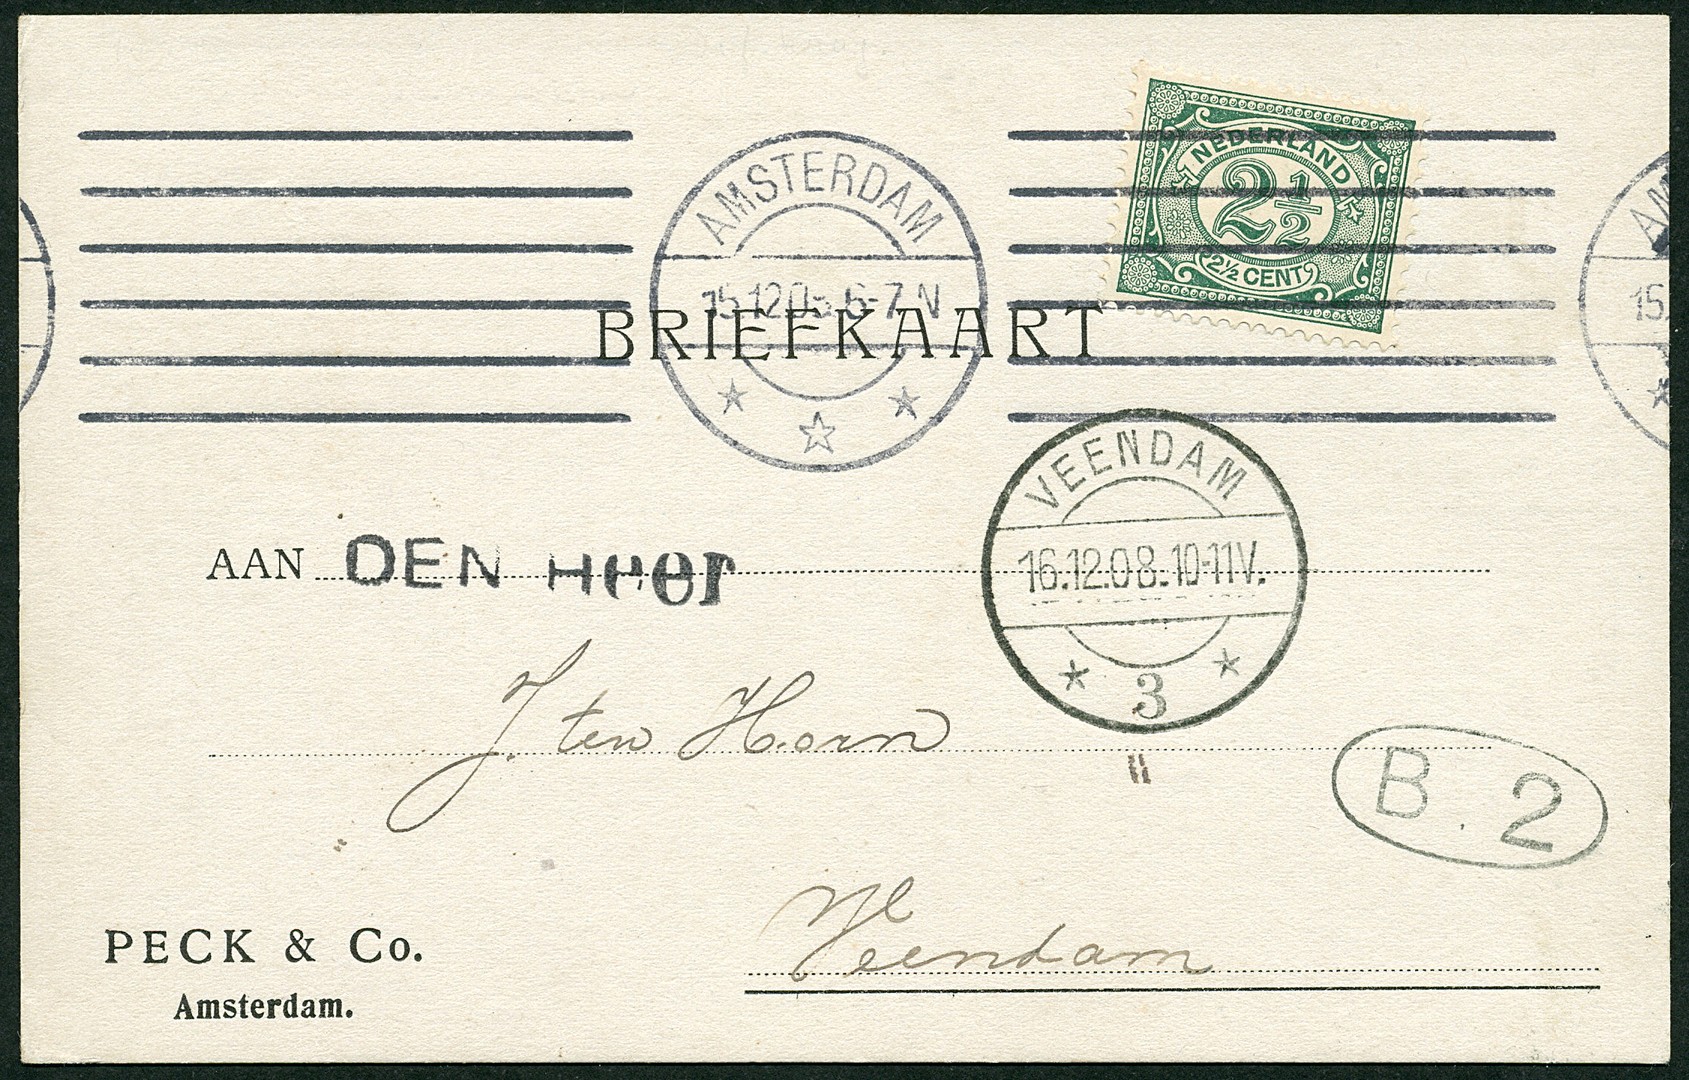 AMSTERDAM
15.12.08 6-7 N
NEDERLAND
2 1/2
2½ CENT
BRIEFKAART
VEENDAM
16.12.08.10-11V.
3
AAN DEN Heer
J. ten Horn
B. 2
Veendam
PECK & Co.
Amsterdam.